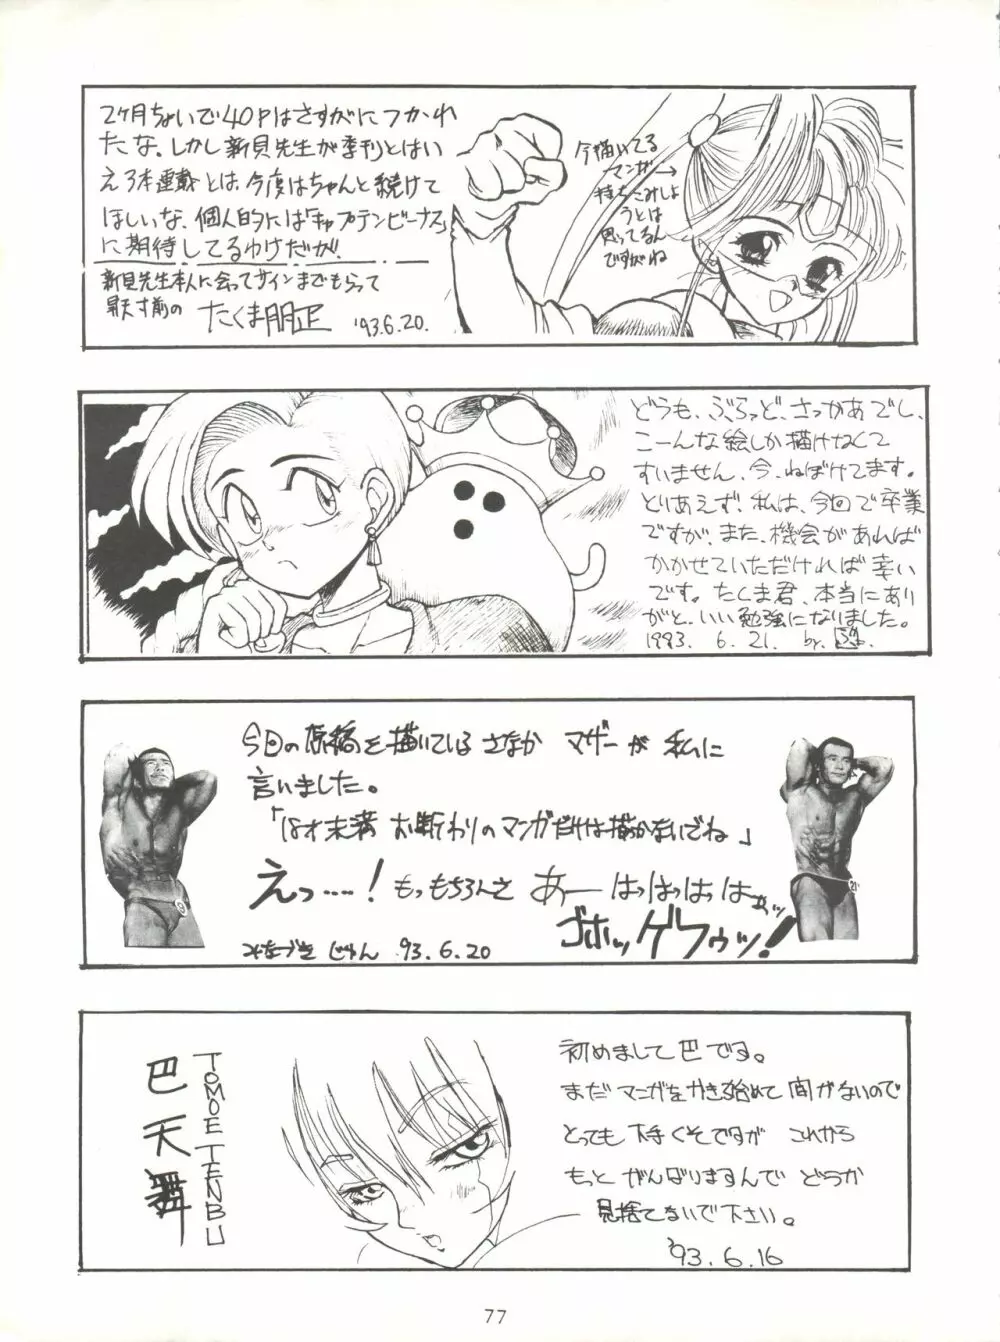 2ヶ月ちょいで40Pはさすがにつかれ
たな。しかし新貝先生が季刊とはい
え3本連載とは、今度はちゃんと続けて
ほしいな、個人的には「キャプテンビーナス」
に期待してるわけだが!
新貝先生本人に会ってサインまでもらって
昇天寸前の たくま朋正 '93.6.20.
今描いてる
マンガ→
持ちこみしよ
うとは
思ってるん
ですがね
どうも、ぶろっど、さっかあでし、
こーんな絵しか描けなくて
すいません、今、ねぼけてます。
とりあえず、私は、今回で卒業
ですが、また、機会があれば
かかせていただければ幸い
です。たくま君、本当にあり
がと、いい勉強になりました。
1993. 6. 21. by.
今回の原稿を描いているさなか マザーが 私に
言いました。
「18才未満 お断わりのマンガだけは描かないでね」
えっ……! もっもちろんさ あーはっはっはっはぁッ
ゴホッゲフゥッ!
みなづき じゅん 93.6.20
21
巴天舞
TOMOE TENBU
初めまして巴です。
まだ マンガをかき始めて 間がないので
とっても 下手くそですが これから
もっと がんばりますんで どうか
見捨てないで下さい。
'93.6.16
77